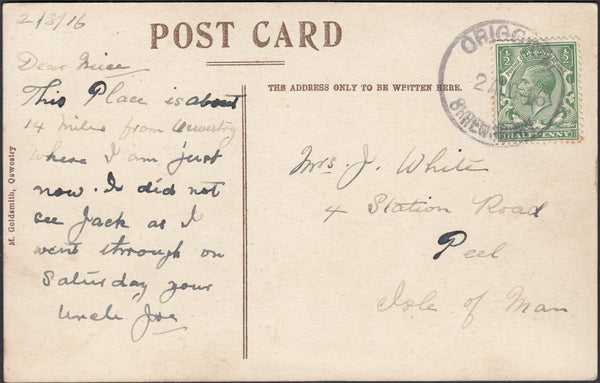 2/8/16
POST CARD
Dear Niece
This Place is about
14 miles from Oswestry
where I am just
now. I did not
see Jack as I
went through on
Saturday your
Uncle Joe
M. Goldsmith, Oswestry
THE ADDRESS ONLY TO BE WRITTEN HERE.
Mrs. J. White
4 Station Road
Peel
Isle of Man
½ ½
HALFPENNY